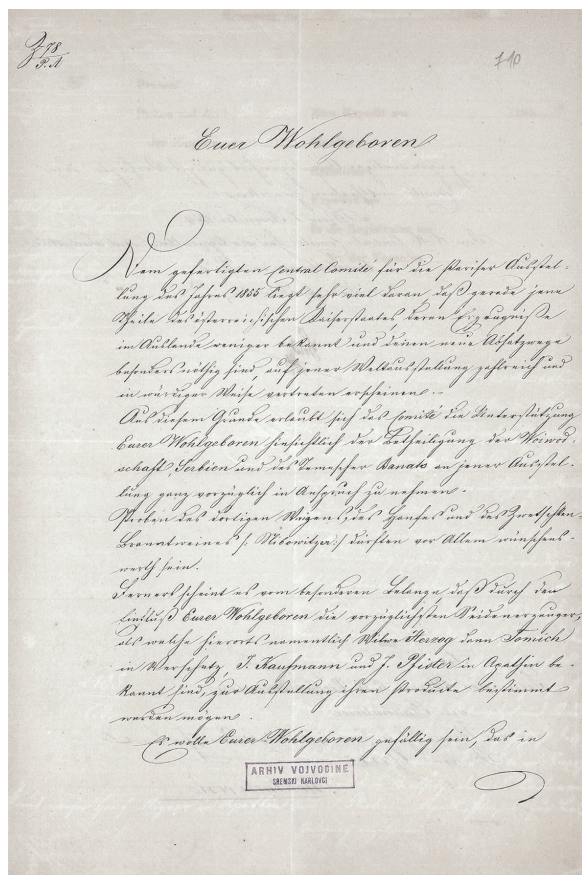 Z 78
P. A
710
Euer Wohlgeboren
Dem gefertigten Central Comité für die Pariser Ausstel-
lung des Jahres 1855 liegt sehr viel daran daß gerade jene
Theile des österreichischen Kaiserstaates deren Erzeugniße
im Auslande weniger bekannt und denen neue Absatzwege
besonders nöthig sind, auf jener Weltausstellung zahlreich und
in würdiger Weise vertreten erscheinen.-
Aus diesem Grunde erlaubt sich das Comité die Unterstützung
Eurer Wohlgeboren hinsichtlich der Betheiligung der Woiwod-
schaft Serbien und des Temescher Banats an jener Ausstel-
lung ganz vorzüglich in Anspruch zu nehmen.-
Proben des dortigen Waizens, des Hanfes und des Zwetschken-
Branntweines /: :/ dürften vor Allem wünschens-
werth sein.
Ferners scheint es vom besonderen Belange daß durch den
Einfluß Eurer Wohlgeboren die vorzüglichsten Seidenerzeuger,
als welche hierorts namentlich Witwe Herzog dann Tomich
in Werschetz, J. Kaufmann und J. Pfister in Apathin be-
kannt sind, zur Ausstellung ihrer Producte bestimmt
werden mögen.
Es wolle Eurer Wohlgeboren gefällig sein, das in
ARHIV VOJVODINE
SREMSKI KARLOVCI